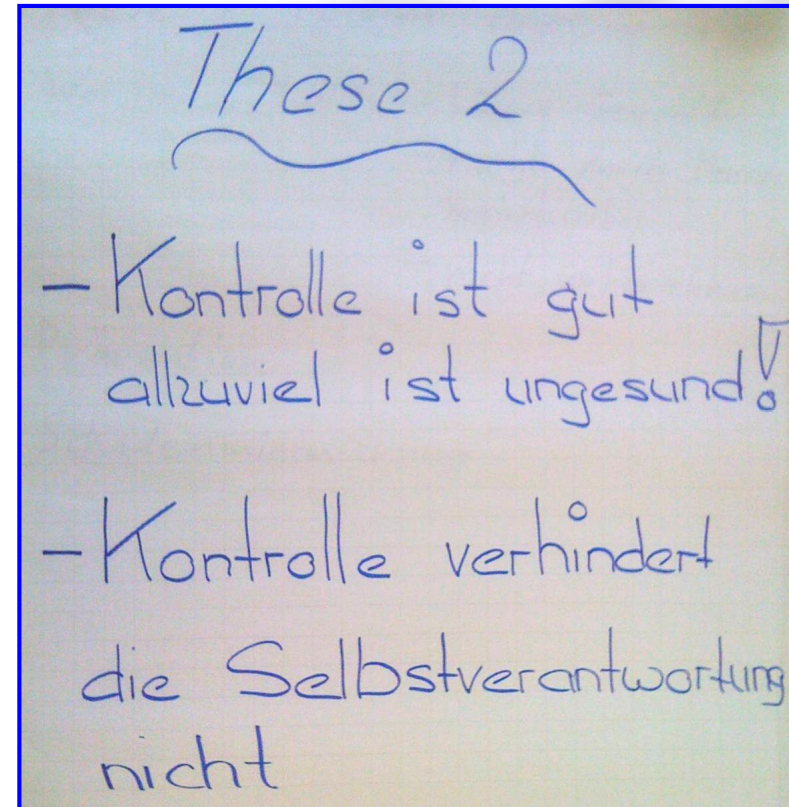 These 2
- Kontrolle ist gut
allzuviel ist ungesund!
- Kontrolle verhindert
die Selbstverantwortung
nicht